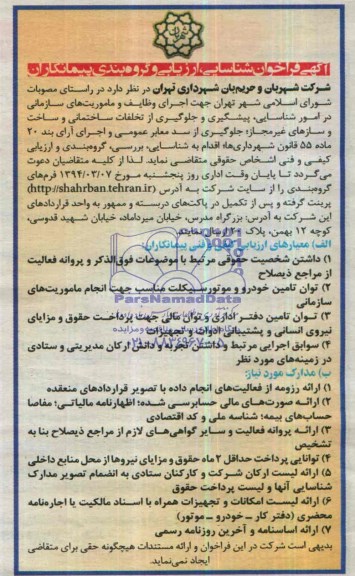 آگهی فراخوان شناسایی، ارزیابی و گروه‌بندی پیمانکاران
شرکت شهربان و حریم‌بان شهرداری تهران در نظر دارد در راستای مصوبات
شورای اسلامی شهر تهران جهت اجرای وظایف و ماموریت‌های سازمانی
در امور شناسایی، پیشگیری و جلوگیری از تخلفات ساختمانی و ساخت
و سازهای غیرمجاز؛ جلوگیری از سد معابر عمومی و اجرای آرای بند ۲۰
ماده ۵۵ قانون شهرداری‌ها؛ اقدام به شناسایی، بررسی، گروه‌بندی و ارزیابی
کیفی و فنی اشخاص حقوقی متقاضی نماید. لذا از کلیه متقاضیان دعوت
می‌گردد تا پایان وقت اداری روز پنجشنبه مورخ ۱۳۹۴/۰۳/۰۷ فرم‌های
گروه‌بندی را از سایت شرکت به آدرس (http://shahrban.tehran.ir)
پرینت گرفته و پس از تکمیل در پاکت‌های دربسته و ممهور به واحد قراردادهای
این شرکت به آدرس: بزرگراه مدرس، خیابان میرداماد، خیابان شهید قدوسی،
کوچه ۱۲ بهمن، پلاک ۲۰ ارسال نمایند.
الف) معیارهای ارزیابی کیفی و فنی پیمانکاران:
۱) داشتن شخصیت حقوقی مرتبط با موضوعات فوق‌الذکر و پروانه فعالیت
از مراجع ذیصلاح
۲) توان تامین خودرو و موتورسیکلت مناسب جهت انجام ماموریت‌های
سازمانی
۳) توان تامین دفتر اداری و توان مالی جهت پرداخت حقوق و مزایای
نیروی انسانی و پشتیبانی ادوات و تجهیزات
۴) سوابق اجرایی مرتبط و داشتن تجربه و دانش ارکان مدیریتی و ستادی
در زمینه‌های مورد نظر
ب) مدارک مورد نیاز:
۱) ارائه رزومه از فعالیت‌های انجام داده با تصویر قراردادهای منعقده
۲) ارائه صورت‌های مالی حسابرسی شده؛ اظهارنامه مالیاتی؛ مفاصا
حساب‌های بیمه؛ شناسه ملی و کد اقتصادی
۳) ارائه پروانه فعالیت و سایر گواهی‌های لازم از مراجع ذیصلاح بنا به
تشخیص
۴) توانایی پرداخت حداقل ۲ ماه حقوق و مزایای نیروها از محل منابع داخلی
۵) ارائه لیست ارکان شرکت و کارکنان ستادی به انضمام تصویر مدارک
شناسایی آنها و لیست پرداخت حقوق
۶) ارائه لیست امکانات و تجهیزات همراه با اسناد مالکیت یا اجاره‌نامه
محضری (دفتر کار ــ خودرو ــ موتور)
۷) ارائه اساسنامه و آخرین روزنامه رسمی
بدیهی است شرکت در این فراخوان و ارائه مستندات هیچگونه حقی برای متقاضی
ایجاد نمی‌نماید.
ParsNamadData